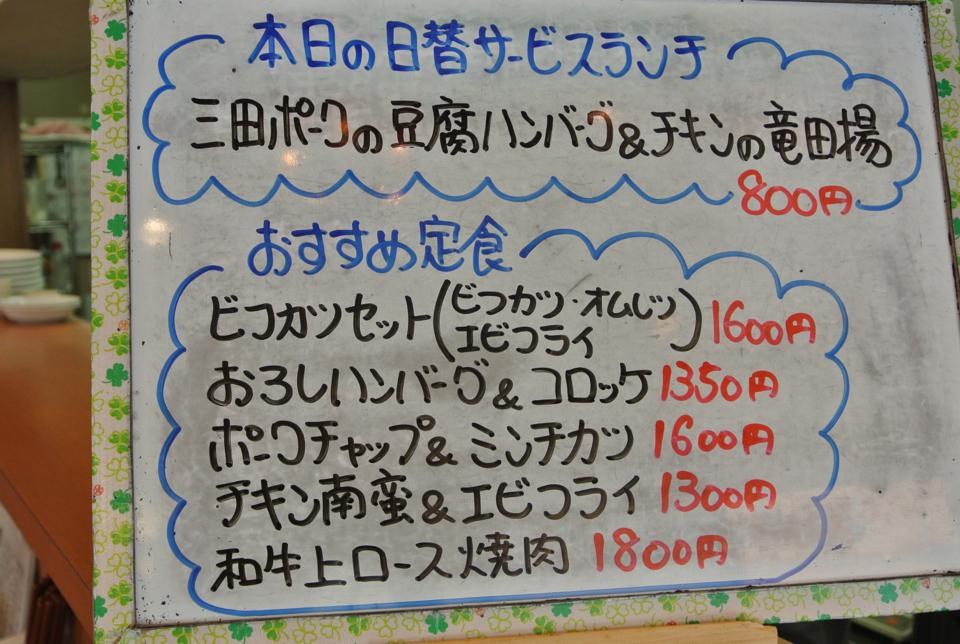 本日の日替サービスランチ
三田ポークの豆腐ハンバーグ&チキンの竜田揚
800円
おすすめ定食
ビフカツセット(ビフカツ・オムレツ
エビフライ) 1600円
おろしハンバーグ&コロッケ 1350円
ポークチャップ&ミンチカツ 1600円
チキン南蛮&エビフライ 1300円
和牛上ロース焼肉 1800円